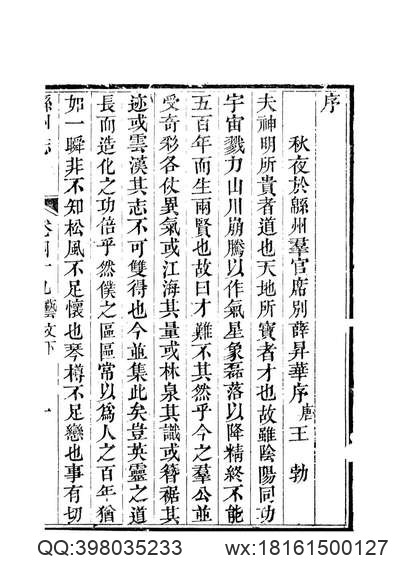 序
秋夜於緜州羣官席別薛昇華序 唐 王勃
夫神明所貴者道也天地所寶者才也故雖陰陽同功
宇宙戮力山川崩騰以作氣星象磊落以降精終不能
五百年而生兩賢也故曰才難不其然乎今之羣公並
受奇彩各仗異氣或江海其量或林泉其識或簪裾其
迹或雲漢其志不可雙得也今並集此矣豈英靈之道
長而造化之功倍乎然僕之區區常以爲人之百年猶
如一瞬非不知松風不足懷也琴樽不足戀也事有切
緜州志 卷四十九 藝文下 一
QQ:398035233
wx:18161500127